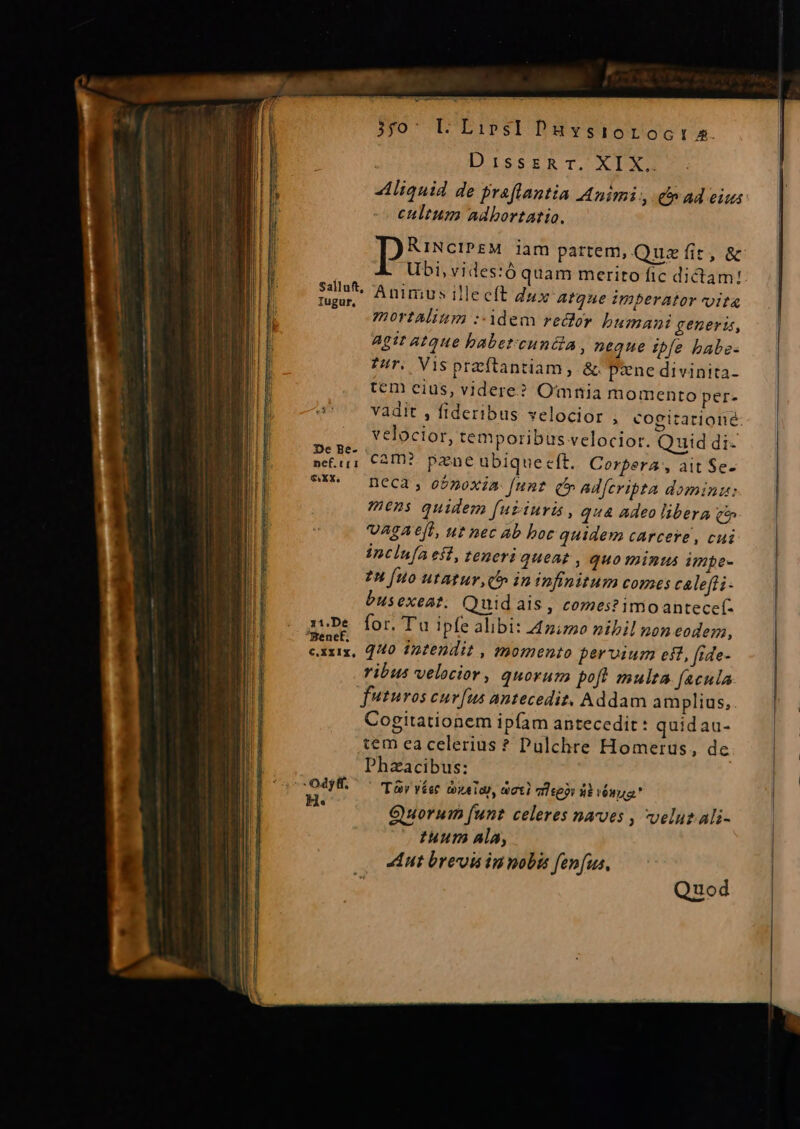 350 I. LipsI Physiologiæ
Dissert. XIX.
Aliquid de præſtantia Animi, & ad eius
cultum adhortatio.
PRINCIPEM iam partem, Quæ ſit, &
Ubi, vides: ô quam merito ſic dictam!
Salluſt, Iugur,
Animus ille eſt dux atque imperator vitæ
mortalium: idem rector humani generis,
agit atque habet cuncta, neque ipſe habe-
tur. Vis præſtantiam, & pæne divinita-
tem eius, videre? Omnia momento per-
vadit, ſideribus velocior, cogitatione
velocior, temporibus velocior. Quid di-
De Be-
neſ. III
c. XX.
cam? pæne ubique eſt. Corpora, ait Se-
neca, obnoxia ſunt & adſcripta dominis:
mens quidem ſui iuris, quæ adeo libera &
vaga eſt, ut nec ab hoc quidem carcere, cui
incluſa eſt, teneri queat, quo minus impe-
tu ſuo utatur, & in infinitum comes cæleſti-
bus exeat. Quid ais, comes? imo anteceſ-
11. De
Beneſ.
c. XXIX,
ſor. Tu ipſe alibi: Animo nihil non eodem,
quo intendit, momento pervium eſt, ſide-
ribus velocior, quorum poſt multa ſæcula
futuros curſus antecedit. Addam amplius,
Cogitationem ipſam antecedit: quid au-
tem ea celerius? Pulchre Homerus, de
Phæacibus:
Odyſſ. H.
Τῶν νέες ὠκεῖαι, ὡσεὶ πτερὸν ἠὲ νόημα·
Quorum ſunt celeres naves, velut ali-
tuum ala,
Aut brevis in nobis ſenſus.
Quod